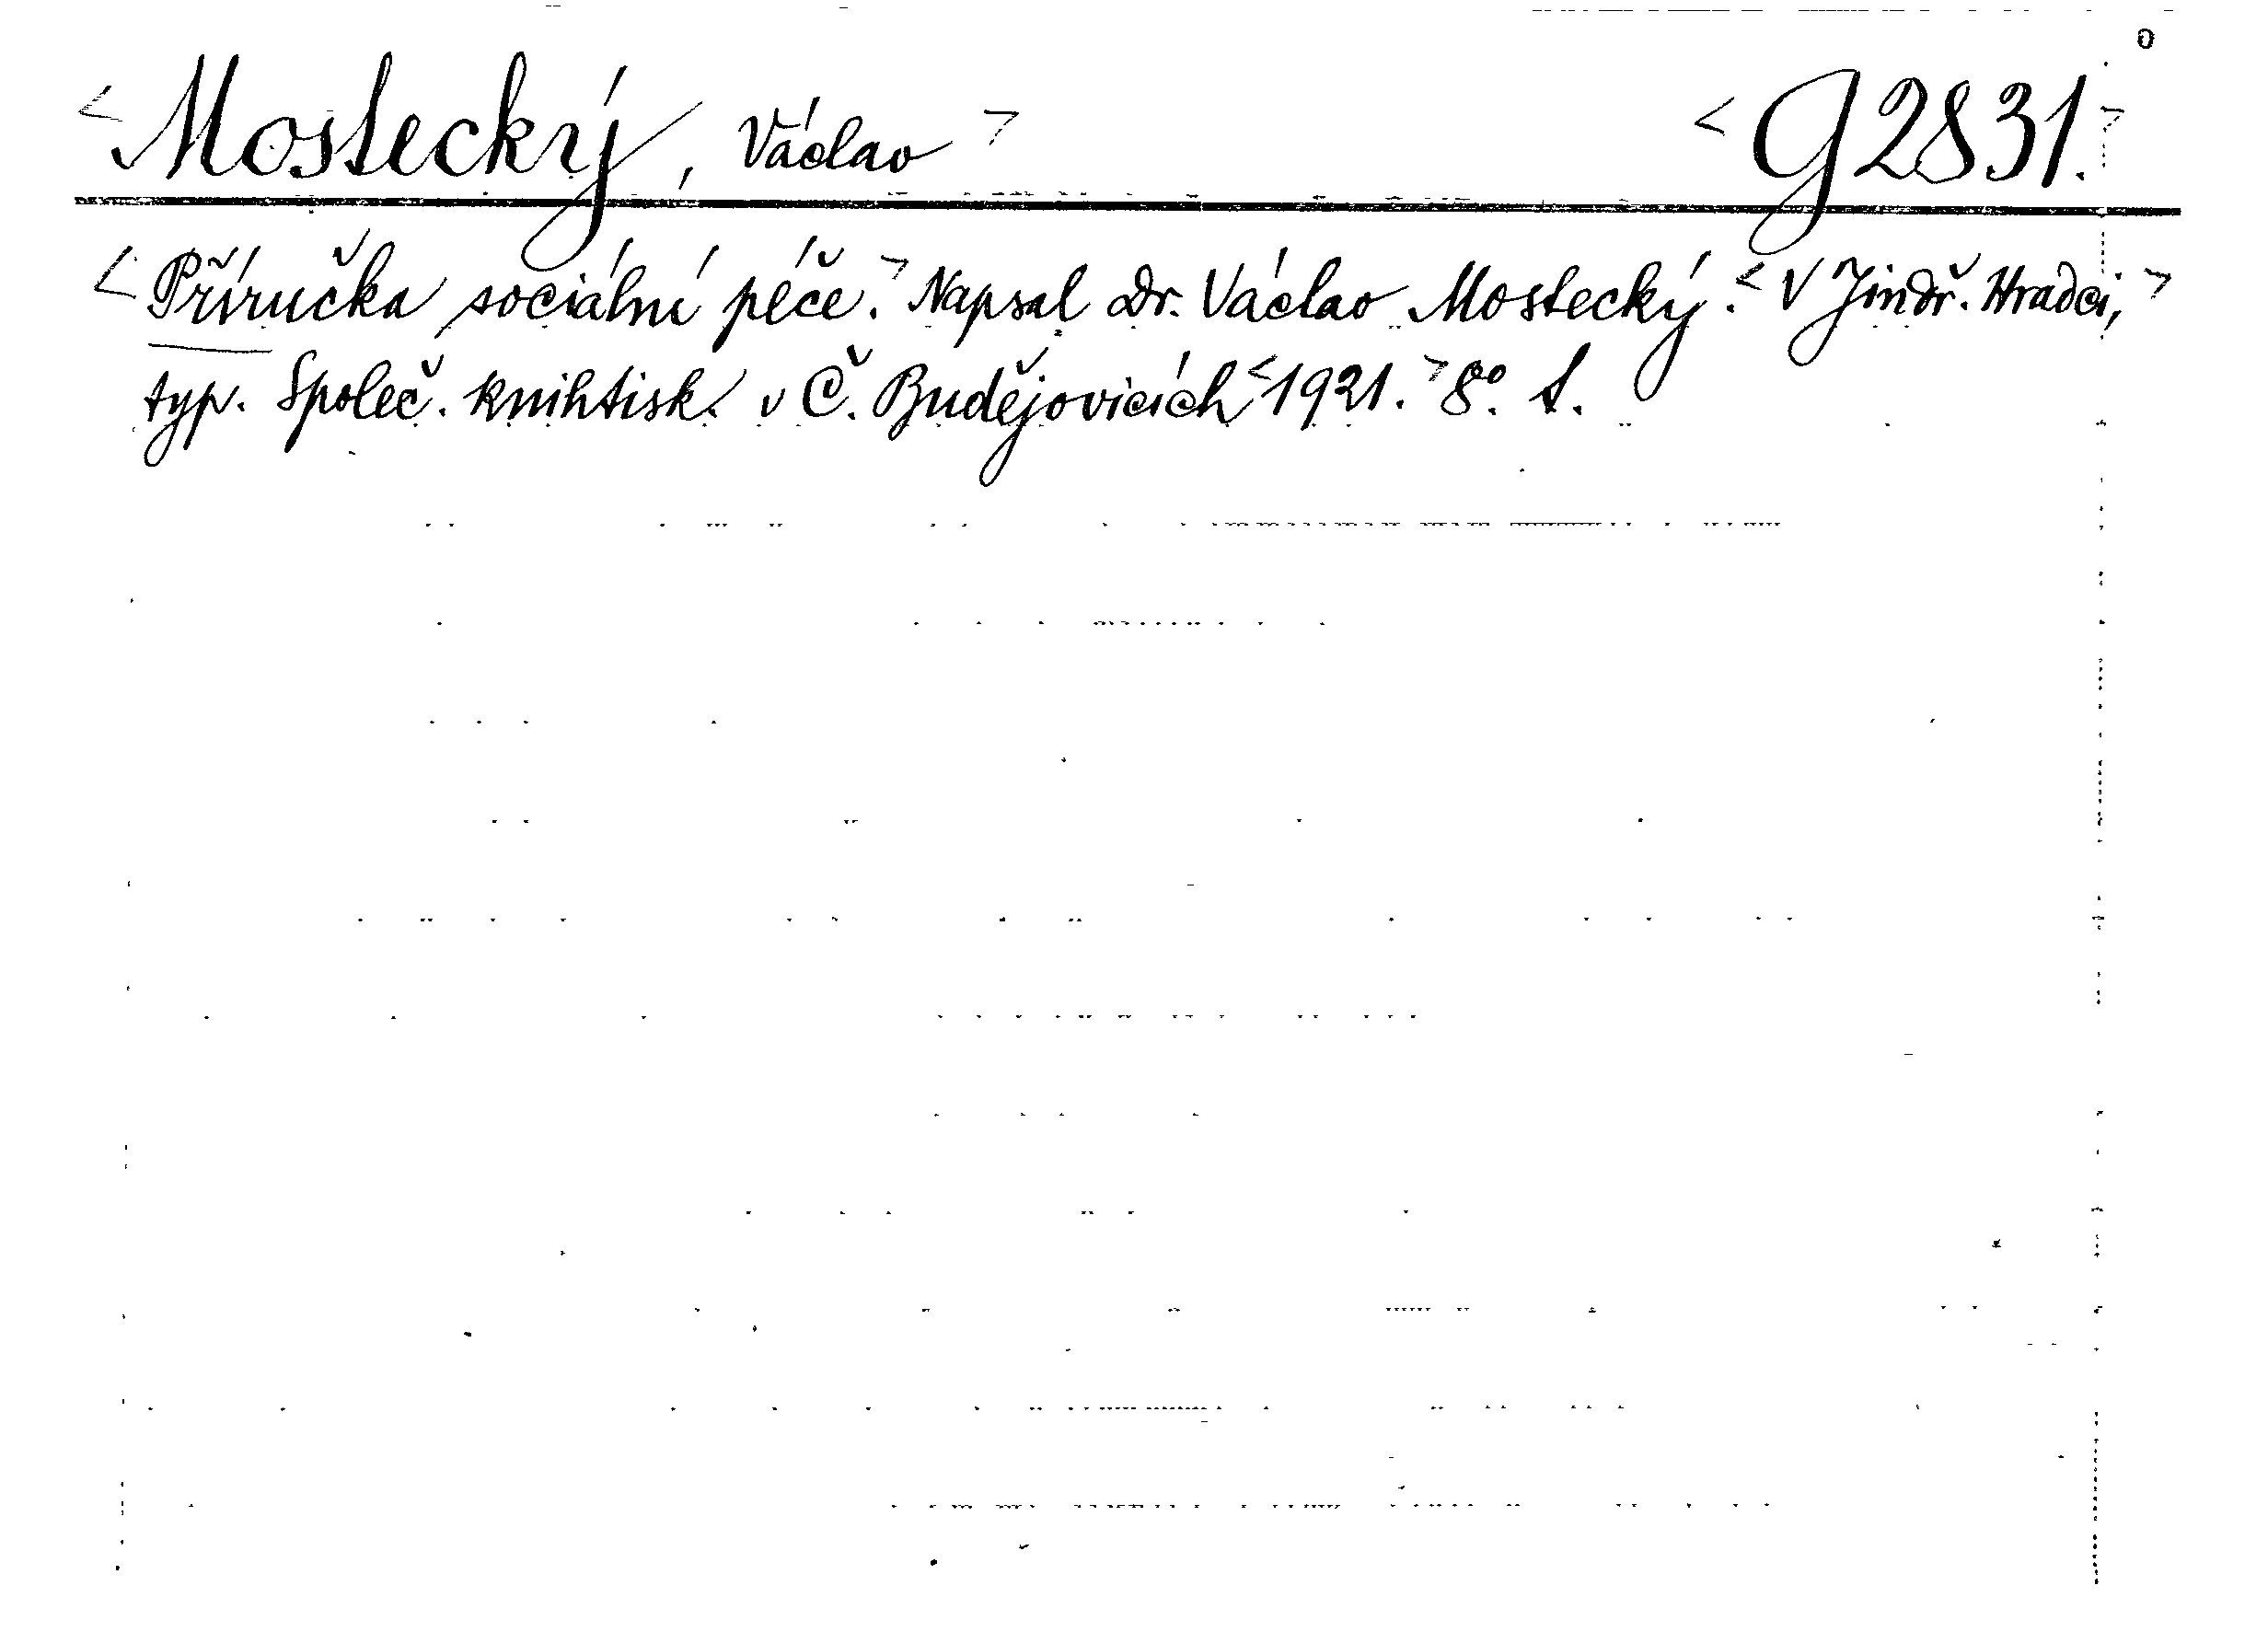 <Mostecký, Václav> <G 2831.>
<Příručka sociální péče.> Napsal Dr. Václav Mostecký. <V Jindř. Hradci,>
typ. Společ. knihtisk. v Č. Budějovicích <1921.> 8°. S.